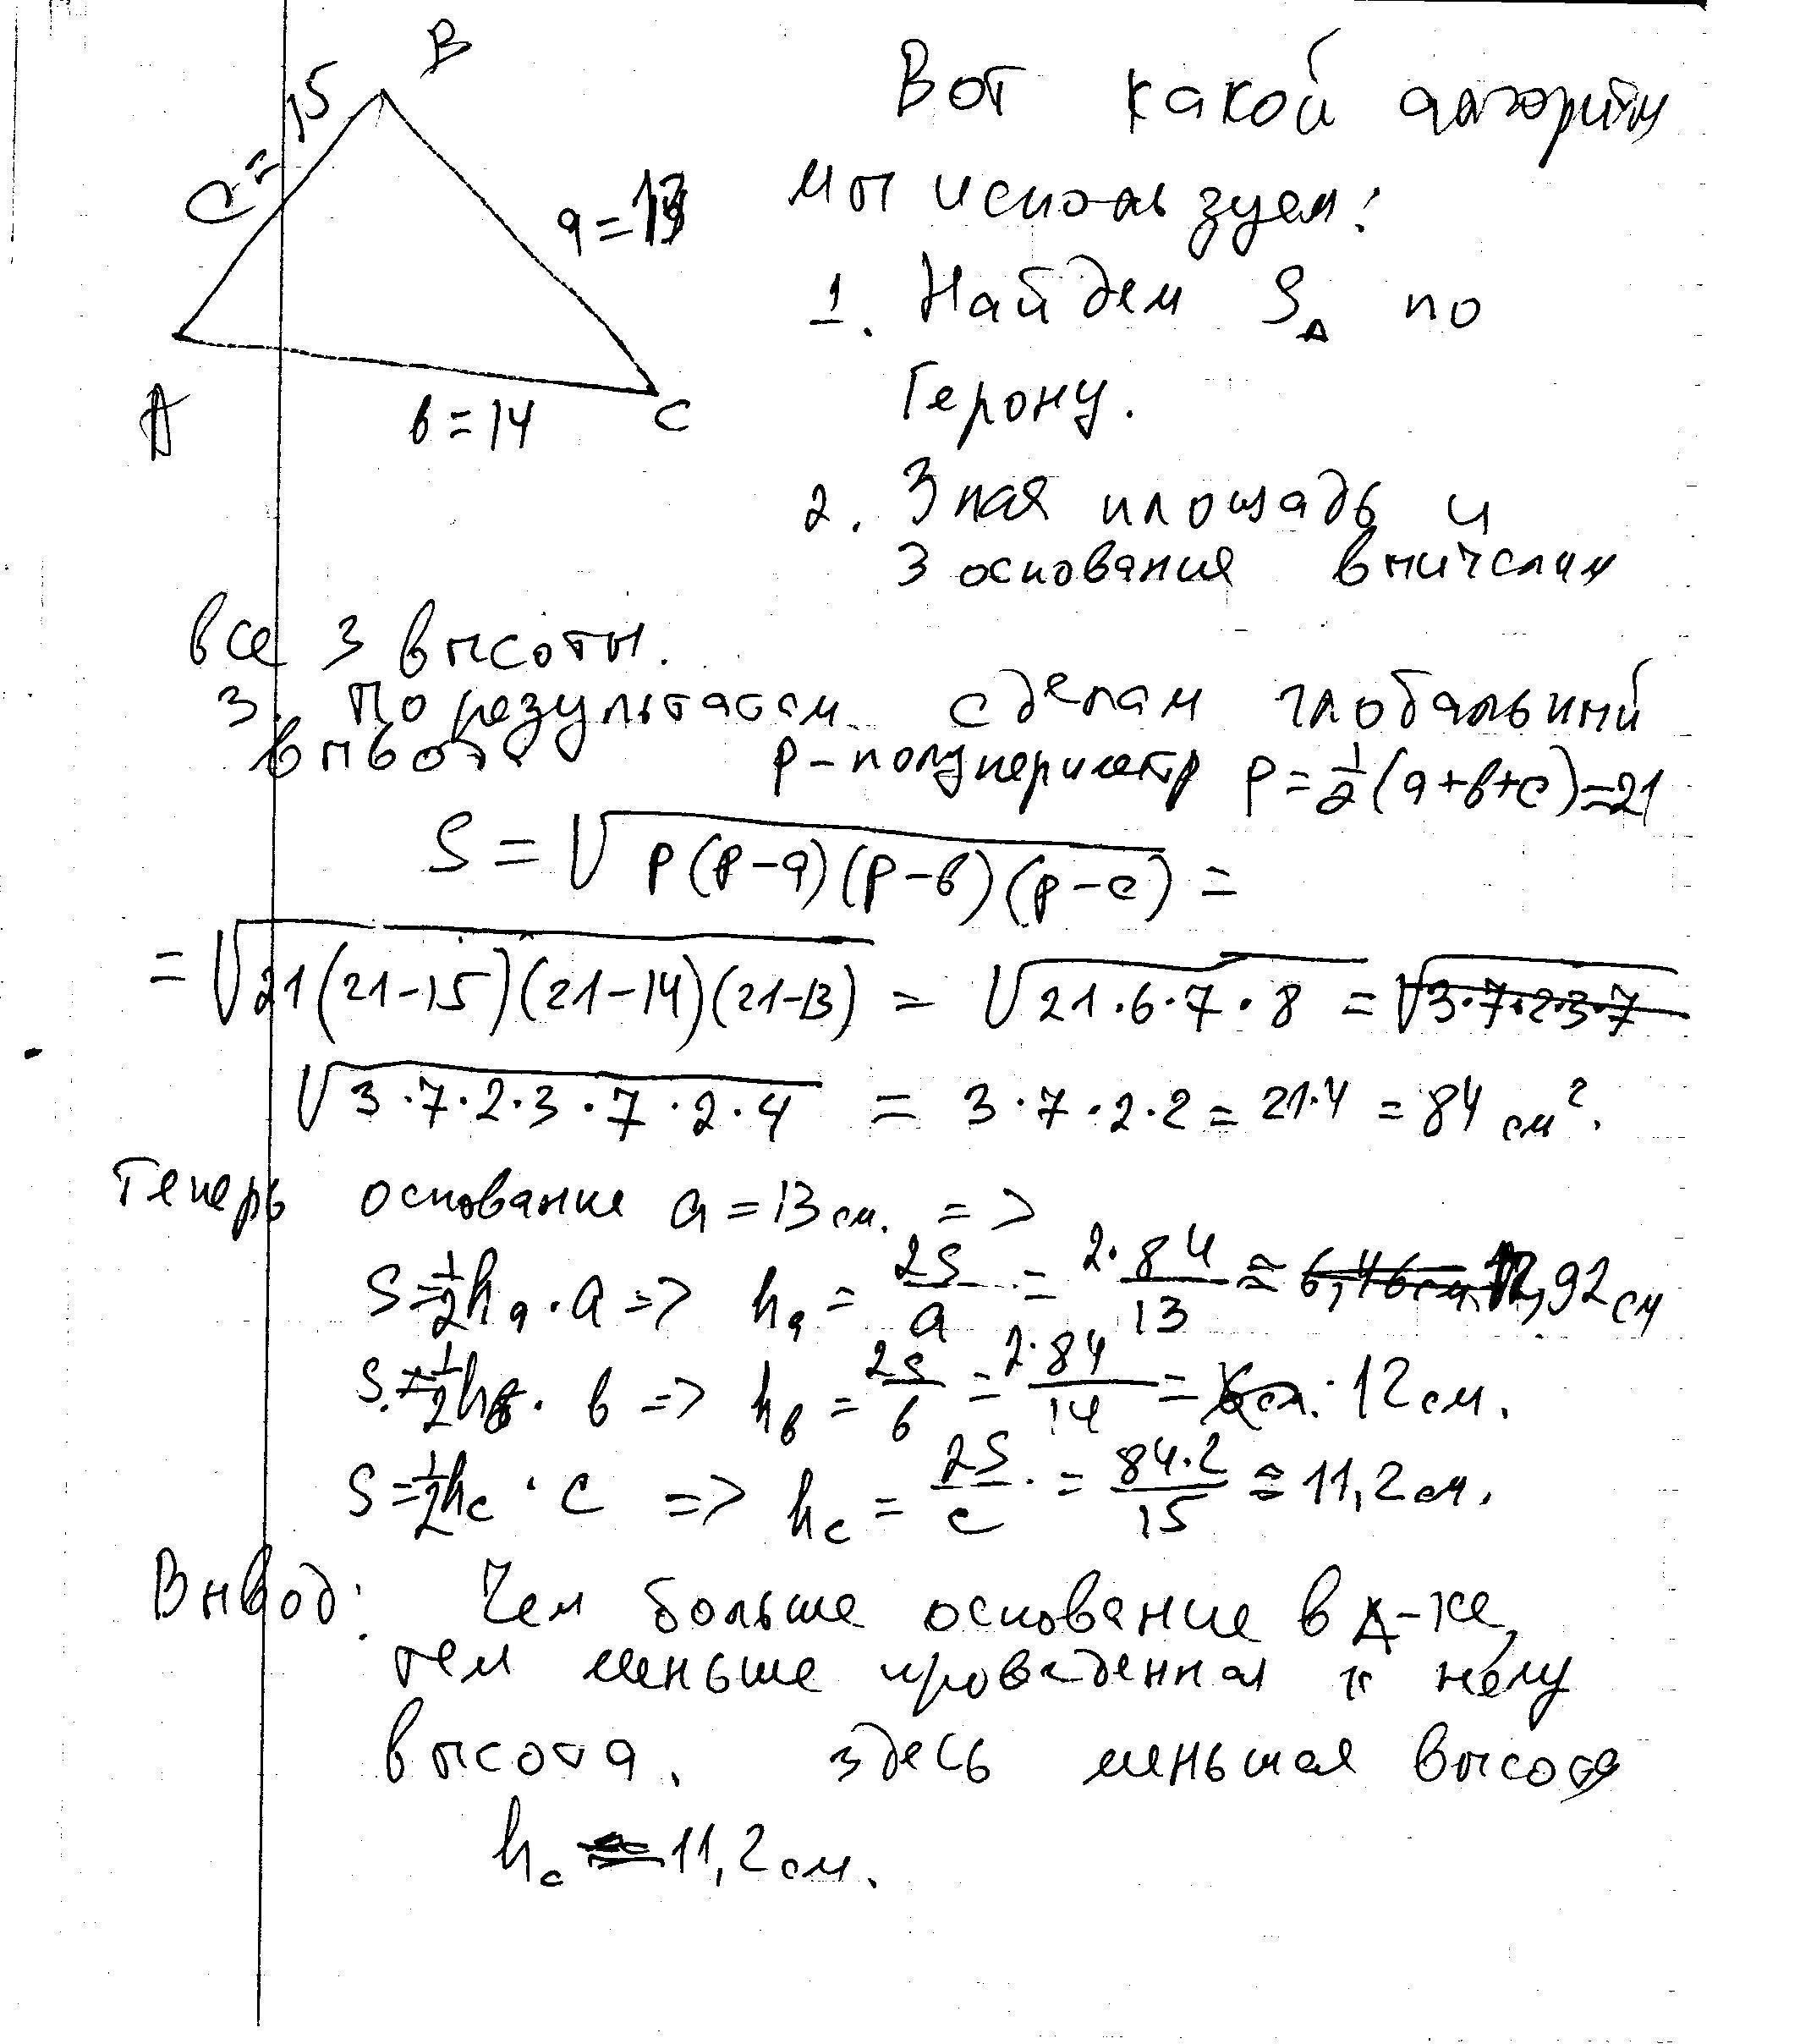 B
c=15
a=13
A
в=14
C
Вот какой алгоритм
мы используем:
1. Найдем S△ по
Герону.
2. Зная площадь и
3 основания вычислим
все 3 высоты.
3. По результатам сделам глобальный
вывод
p - полупериметр p = 1/2 (a+в+c) = 21
S = √p(p-a)(p-в)(p-c) =
= √21(21-15)(21-14)(21-13) = √21·6·7·8 = √3·7·2·3·7
√3·7·2·3·7·2·4 = 3·7·2·2 = 21·4 = 84 см².
Теперь основание a = 13 см. =>
S = 1/2 hₐ · a => hₐ = 2S/a = 2·84/13 ≈ 6,46 см 12,92 см
S = 1/2 hв · в => hв = 2S/в = 2·84/14 = 6 см. 12 см.
S = 1/2 hc · c => hc = 2S/c = 84·2/15 ≈ 11,2 см.
Вывод: Чем больше основание в △-ке,
тем меньше проведенная к нему
высота. Здесь меньшая высота
hc = 11,2 см.